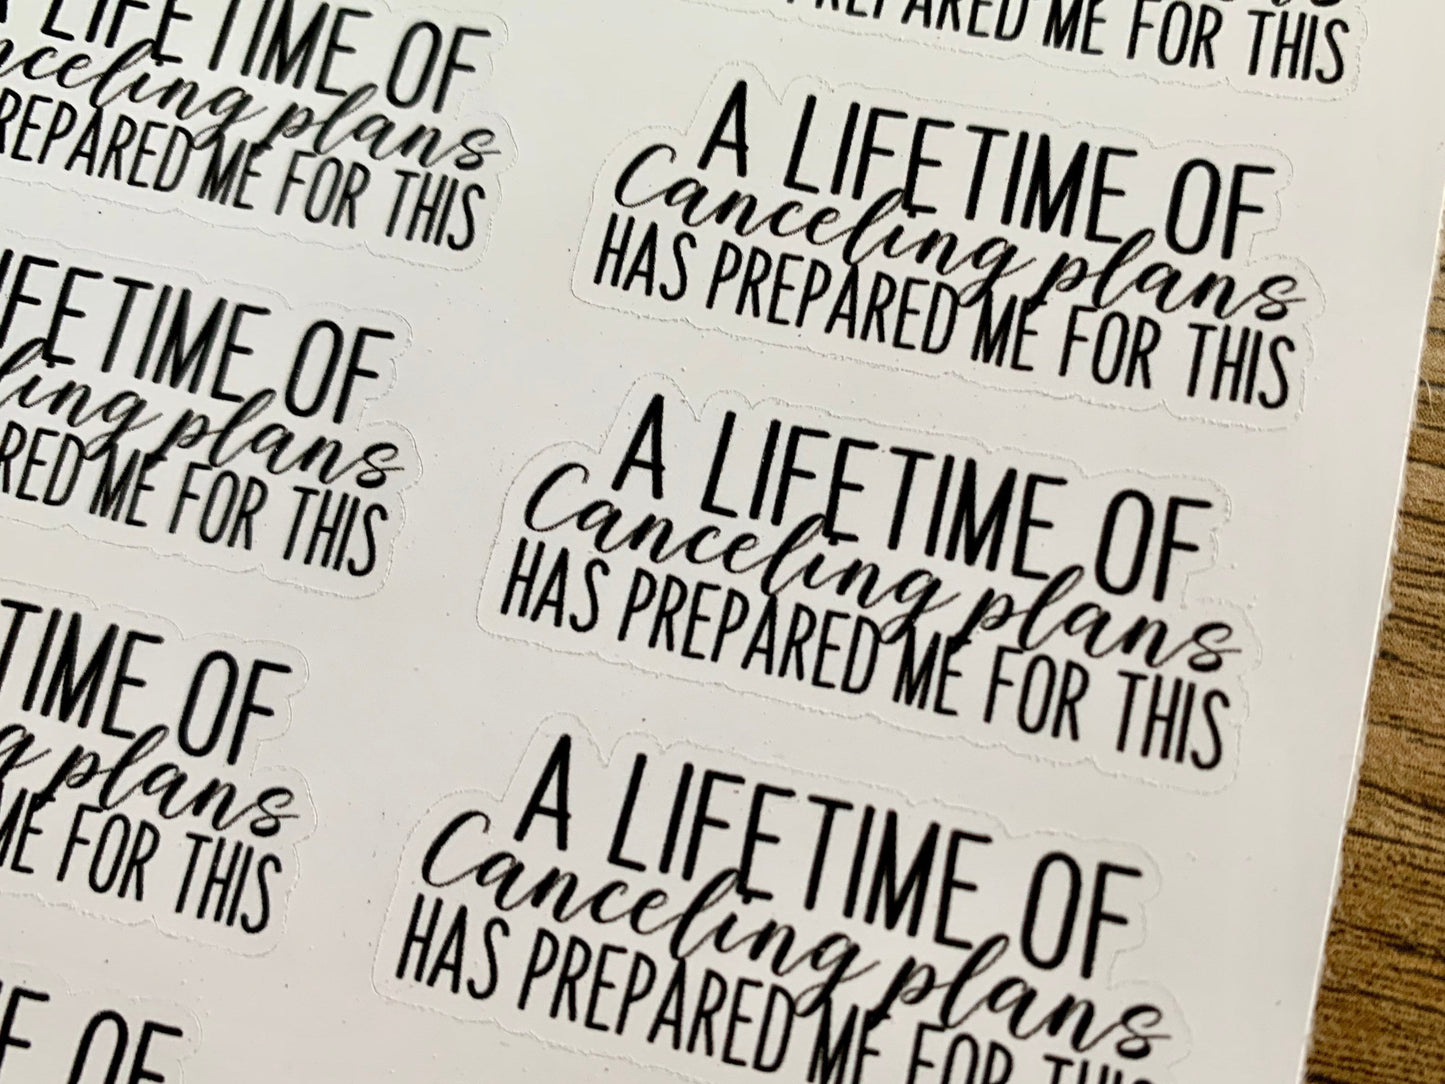 LIFETIME OF
plans
PREPARED ME FOR THIS
LIFETIME OF
plans
PREPARED ME FOR THIS
TIME OF
plans
ME FOR THIS
OF
PREPARED ME FOR THIS
A LIFETIME OF
Canceling plans
HAS PREPARED ME FOR THIS
A LIFETIME OF
Canceling plans
HAS PREPARED ME FOR THIS
A LIFETIME OF
Canceling plans
HAS PREPARED ME FOR THIS